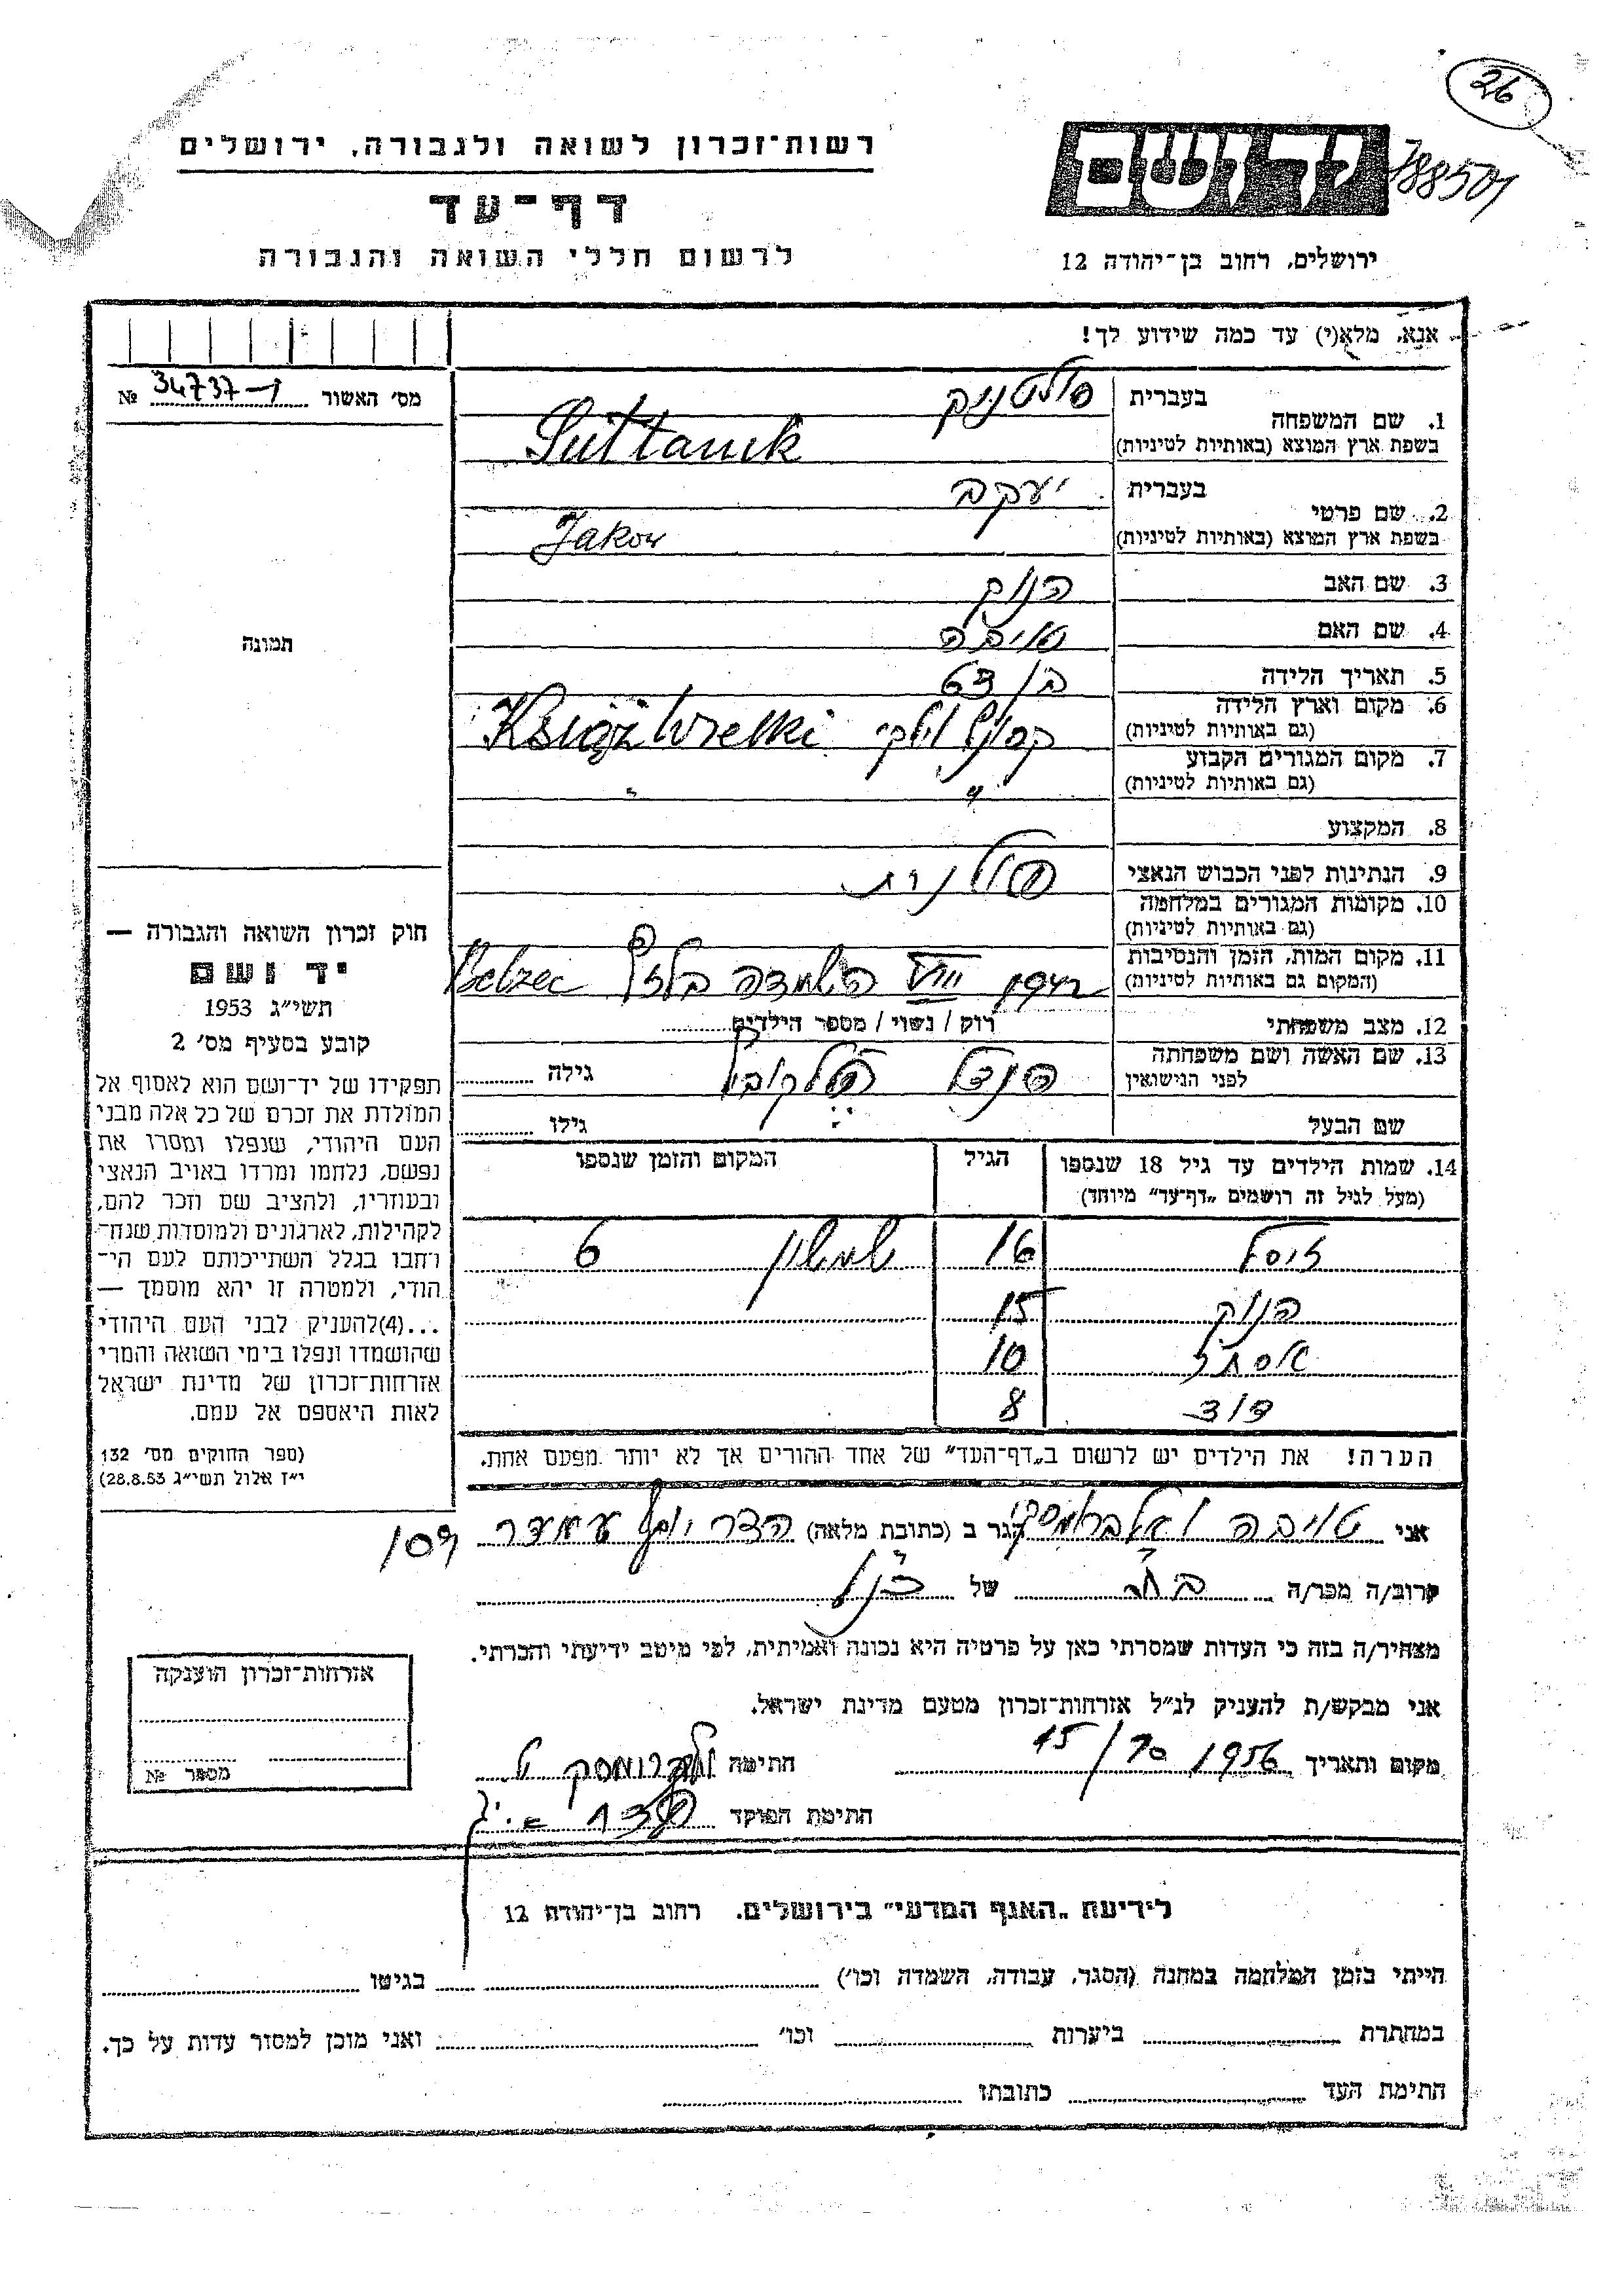 26
788501
רשות־זכרון לשואה ולגבורה, ירושלים
דף־עד
לרשום חללי השואה והגבורה
יד ושם
ירושלים, רחוב בן־יהודה 12
אנא, מלא(י) עד כמה שידוע לך!
מס׳ האשור 34737 №
1. שם המשפחה
בעברית סולטניק
בשפת ארץ המוצא (באותיות לטיניות) Sultanik
2. שם פרטי
בעברית יעקב
בשפת ארץ המוצא (באותיות לטיניות) Jakow
3. שם האב חנוך
4. שם האם טויבה
5. תאריך הלידה בן 63
6. מקום וארץ הלידה (גם באותיות לטיניות) Książ Wielki
7. מקום המגורים הקבוע (גם באותיות לטיניות) " "
8. המקצוע
9. הנתינות לפני הכבוש הנאצי פולנית
10. מקומות המגורים במלחמה (גם באותיות לטיניות)
11. מקום המות, הזמן והנסיבות (המקום גם באותיות לטיניות) VIII השמדה בלזץ Belzec
12. מצב משפחתי רוק / נשוי / מספר הילדים
13. שם האשה ושם משפחתה לפני הנישואין גילה
שם הבעל גילו
14. שמות הילדים עד גיל 18 שנספו (מעל לגיל זה רושמים „דף־עד״ מיוחד)
הגיל
המקום והזמן שנספו
יוסף 16 שמעון 6
חנוך 15
אסתר 10
דוד 8
הערה! את הילדים יש לרשום ב„דף־העד״ של אחד ההורים אך לא יותר מפעם אחת.
תמונה
חוק זכרון השואה והגבורה —
יד ושם
תשי״ג 1953
קובע בסעיף מס׳ 2
תפקידו של יד־ושם הוא לאסוף אל
המולדת את זכרם של כל אלה מבני
העם היהודי, שנפלו ומסרו את
נפשם, נלחמו ומרדו באויב הנאצי
ובעוזריו, ולהציב שם וזכר להם,
לקהילות, לארגונים ולמוסדות שנח־
רחבו בגלל השתייכותם לעם הי־
הודי, ולמטרה זו יהא מוסמך —
...(4)להעניק לבני העם היהודי
שהושמדו ונפלו בימי השואה והמרי
אזרחות־זכרון של מדינת ישראל
לאות היאספם אל עמם.
(ספר החוקים מס׳ 132
י״ז אלול תשי״ג 28.8.53)
אני טויבה הגר ב (כתובת מלאה) הצר יוסף עמדר
קרוב/ה מכר/ה בת של
מצהיר/ה בזה כי העדות שמסרתי כאן על פרטיה היא נכונה ואמיתית, לפי מיטב ידיעתי והכרתי.
אני מבקש/ת להעניק לנ״ל אזרחות־זכרון מטעם מדינת ישראל.
מקום ותאריך 15/10 1956 חתימה
חתימת הפוקד
אזרחות־זכרון הוענקה
מספר №
לידיעת „האגף המדעי״ בירושלים. רחוב בן־יהודה 12
הייתי בזמן המלחמה במחנה (הסגר, עבודה, השמדה וכו׳) בגיטו
במחתרת ביערות וכו׳ ואני מוכן למסור עדות על כך.
חתימת העד כתובתו